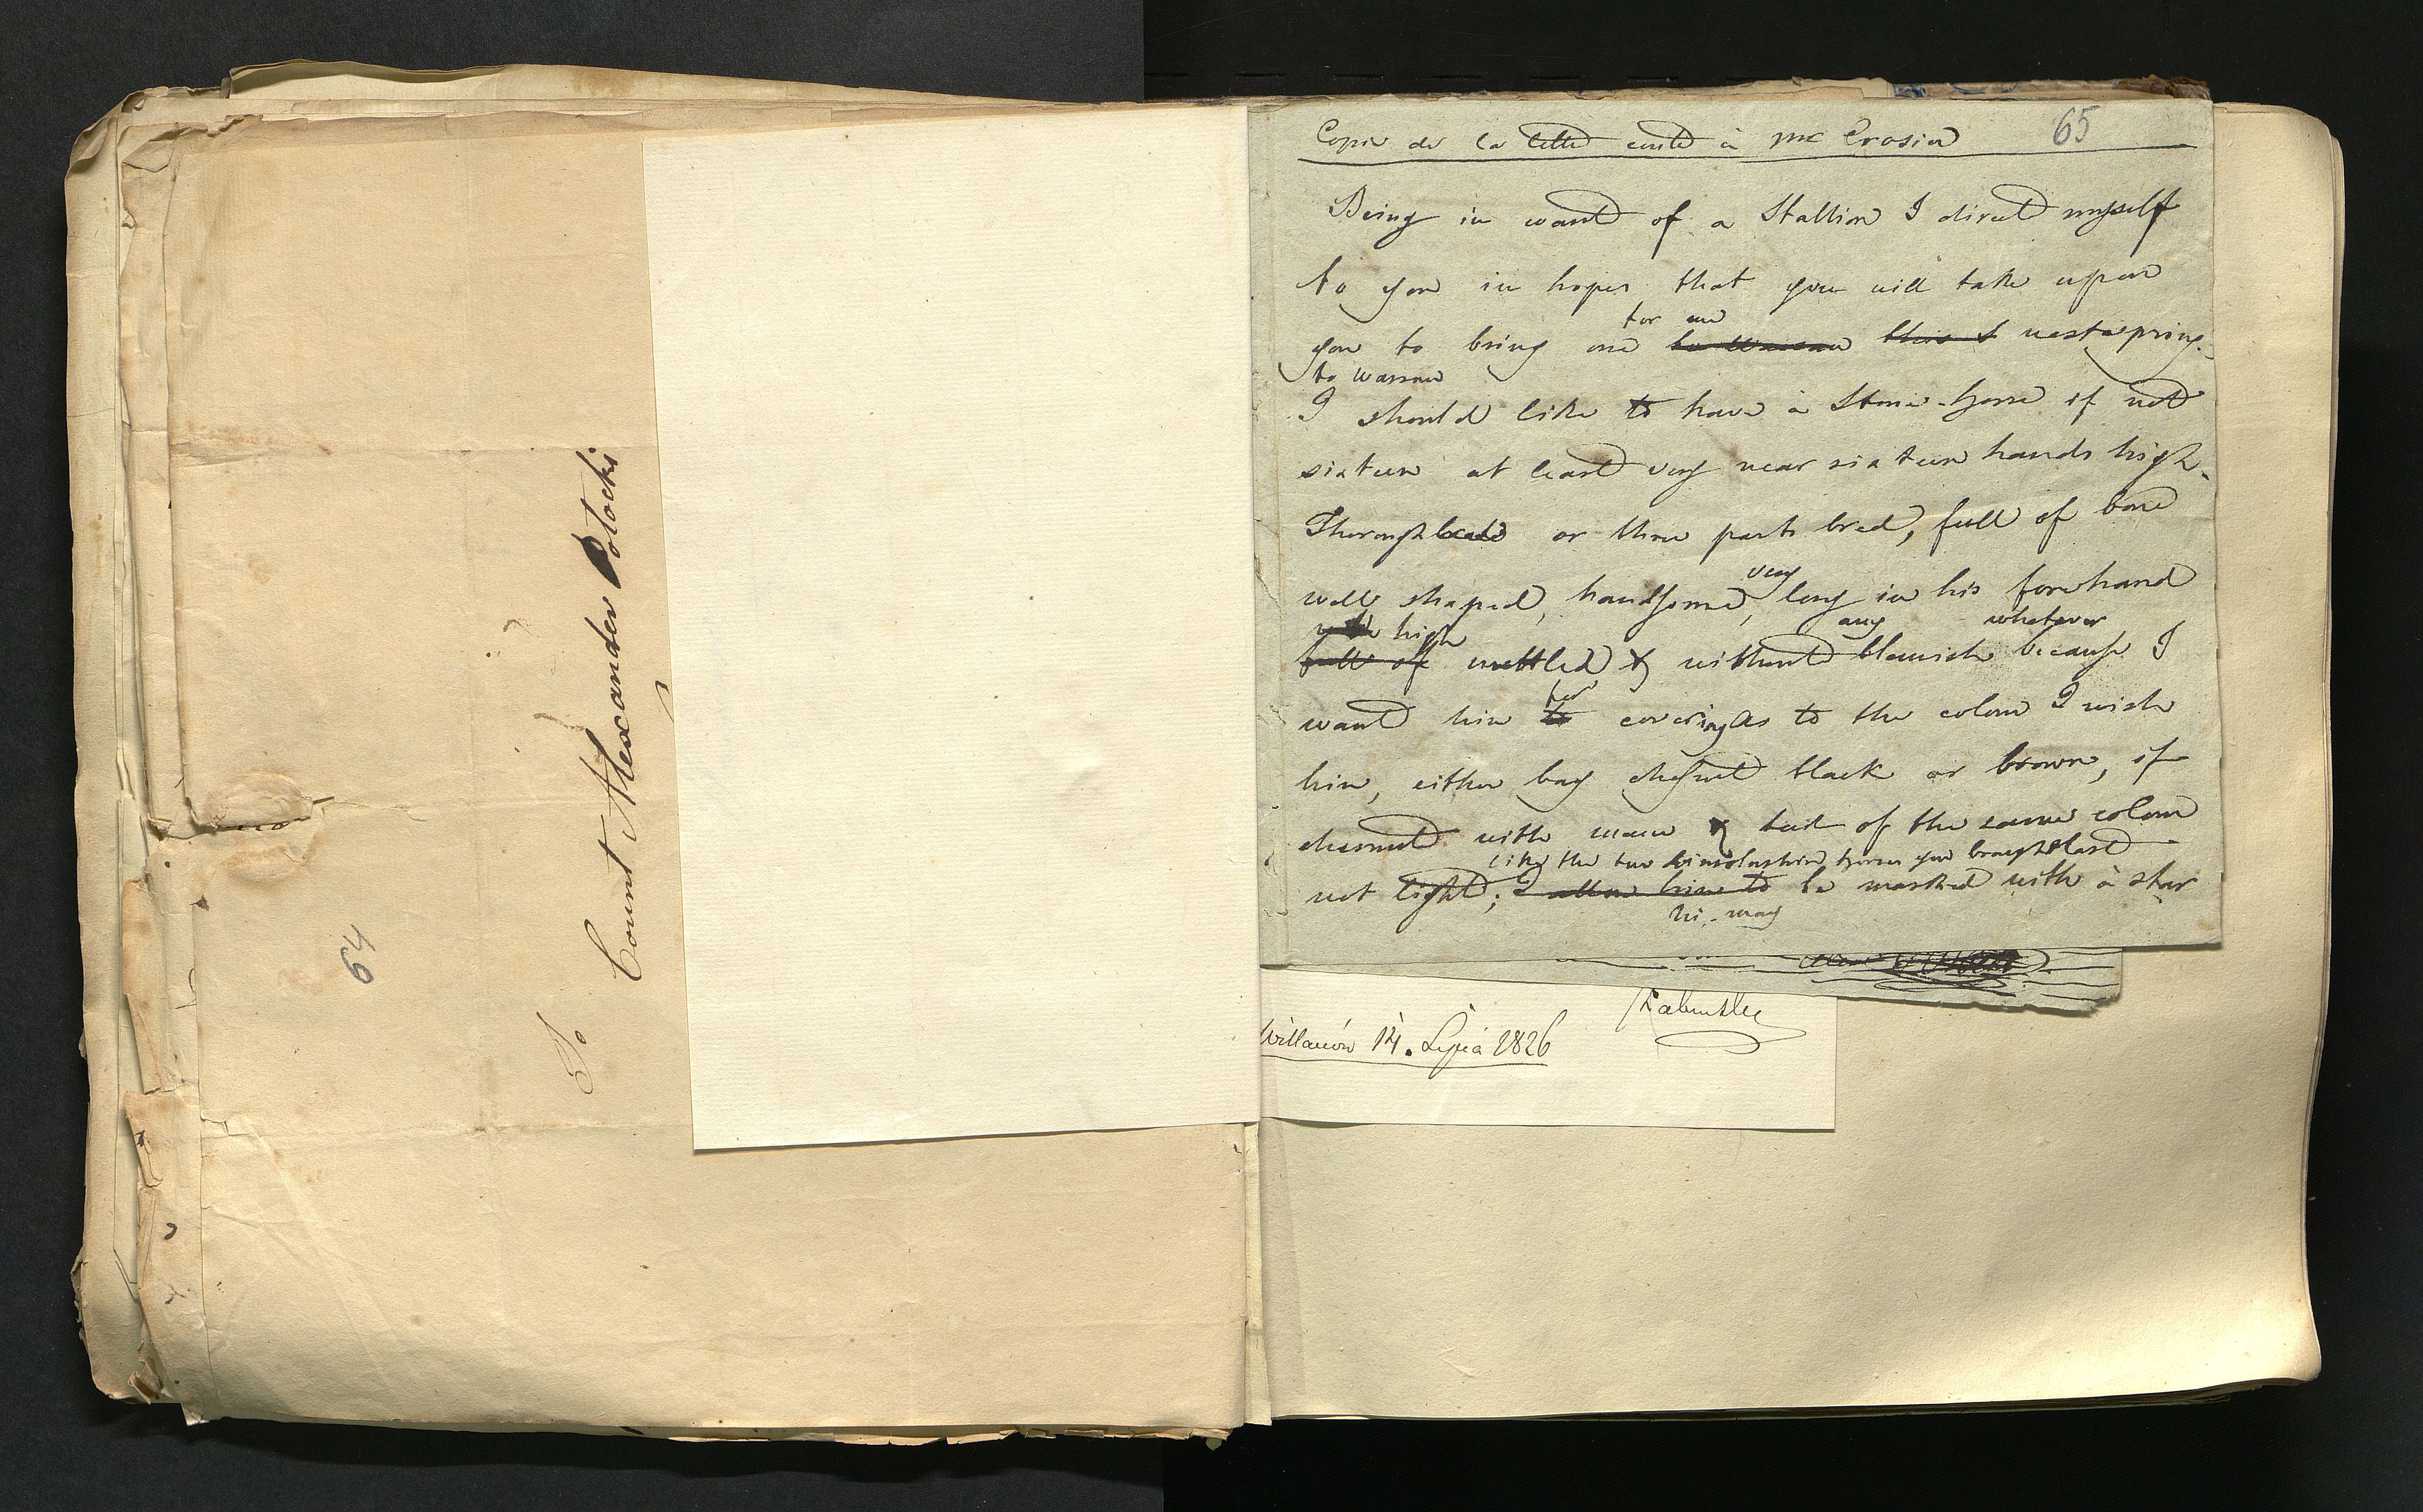 64
To
Count Alexander Potocki
65
Copie de la lettre écrite à Mr Crosier
Being in want of a Stallion I direct myself
to you in hopes that you will take upon
for me
you to bring one to Warsaw this t next spring.
to Warsaw
I should like to have à Stone-horse if not
sixteen at least very near sixteen hands high.
Thorough or three parts bred, full of bone
very
well shaped, handsome, long in his forehand
high any whatever
full of mettled & without blemish because I
for
want him to covering As to the colour I wish
him, either bay chesnut black or brown, if
chesnut with mane & tail of the same colour
like the two Lincolnshire horses you brought last
not light; I allow him to be marked with à star
he may
Willanów 14. Lipca 1826